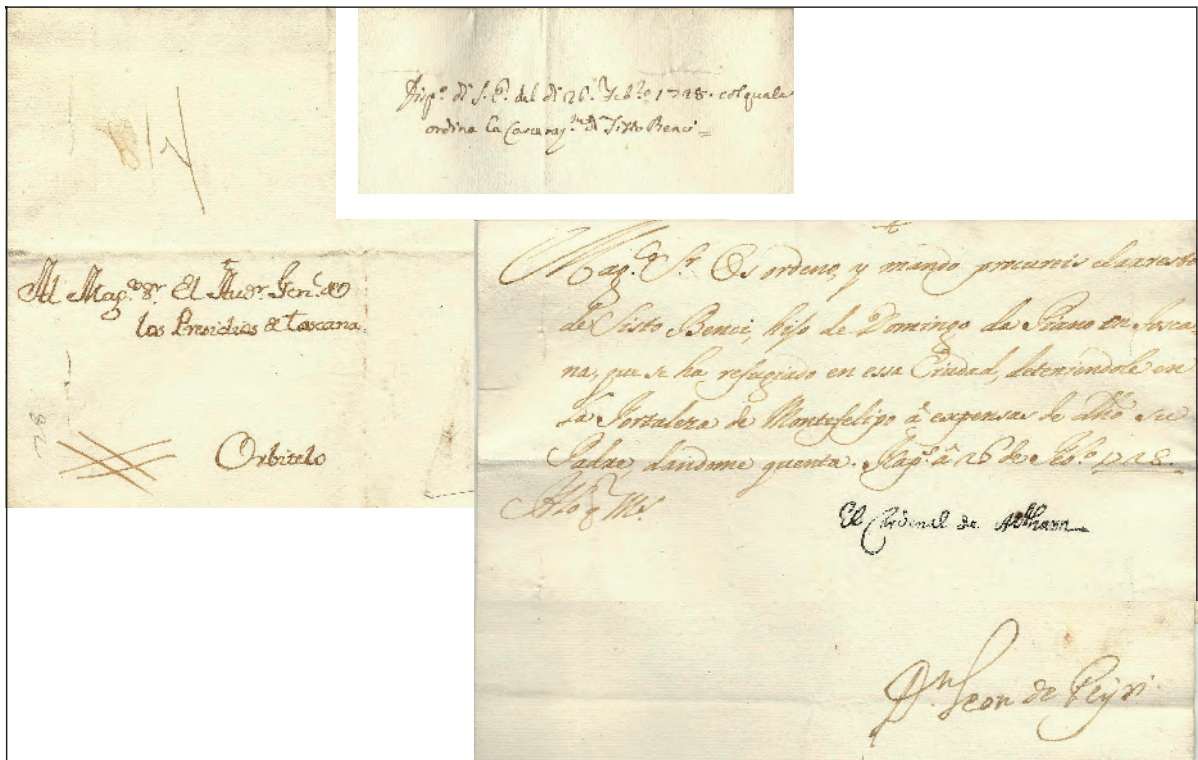 Al Mag.co S.r El Aud.r Gen.l de
los Presidios de Toscana.
Orbitelo
Disp.o di S. E. del dì 26. Feb.o 1728. col quale
ordina la Carceraz.ne di Sisto Benci =
Mag.co S.r Os ordeno, y mando procureis el arresto
de Sisto Benci, hijo de Domingo da Piano en Tosca-
na, que se ha refugiado en essa Ciudad, deteniendole en
la Fortaleza de Montefelipo à expensas de dho su
Padre dandome quenta. Nap.s à 26 de Feb.o 1728.
El Cardenal de Althann
D.n Leon de